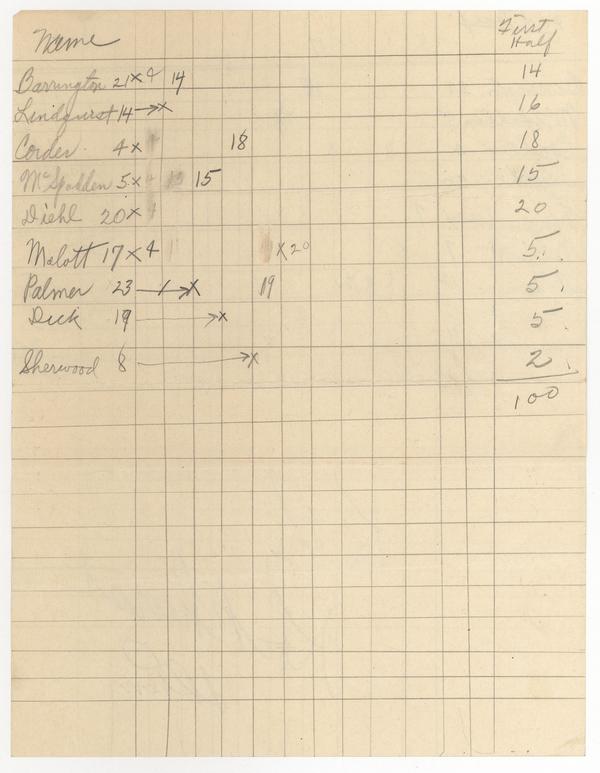 Name First Half
Barrington 21 x 4 14 14
Lindquist 14 → x 16
Corder 4 x 18 18
McSpadden 5 x 15 15
Diehl 20 x 20
Malott 17 x 4 x 20 5.
Palmer 23 → x 19 5.
Dick 19 → x 5.
Sherwood 8 → x 2.
100